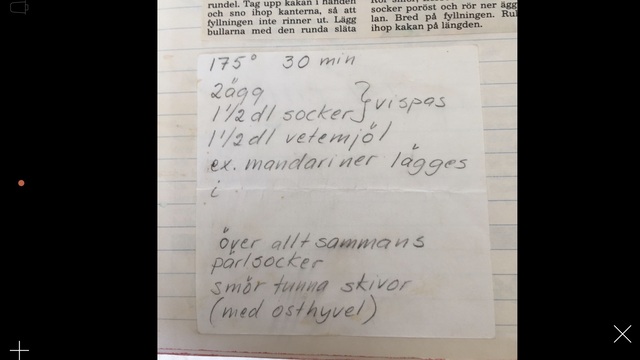 rundel. Tag upp kakan i handen
och sno ihop kanterna, så att
fyllningen inte rinner ut. Lägg
bullarna med den runda släta
socker poröst och rör ner ägg
lan. Bred på fyllningen. Rul
ihop kakan på längden.
175° 30 min
2ägg
1 1/2 dl socker } vispas
1 1/2 dl vetemjöl
ex. mandariner lägges
i
över allt sammans
pärlsocker
smör tunna skivor
(med osthyvel)